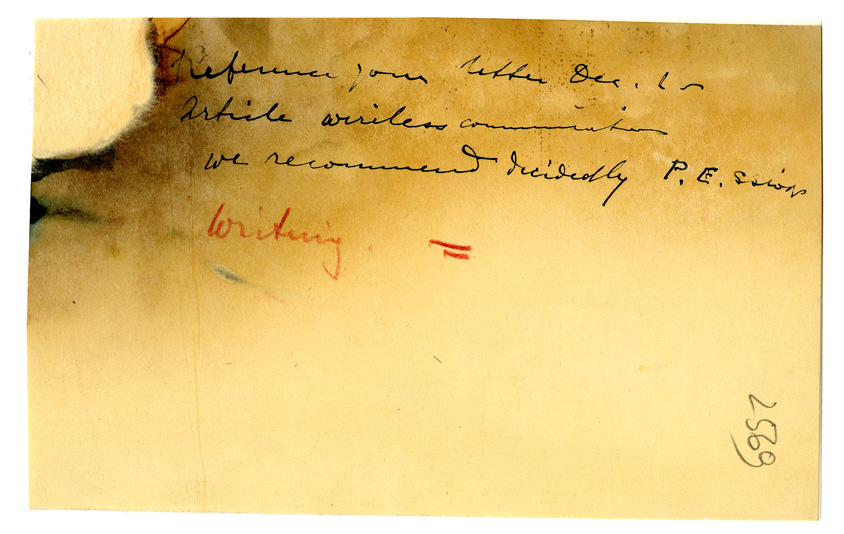 Reference your letter Dec. 15
Article wireless communication
we recommend decidedly P. E.
Writing. =